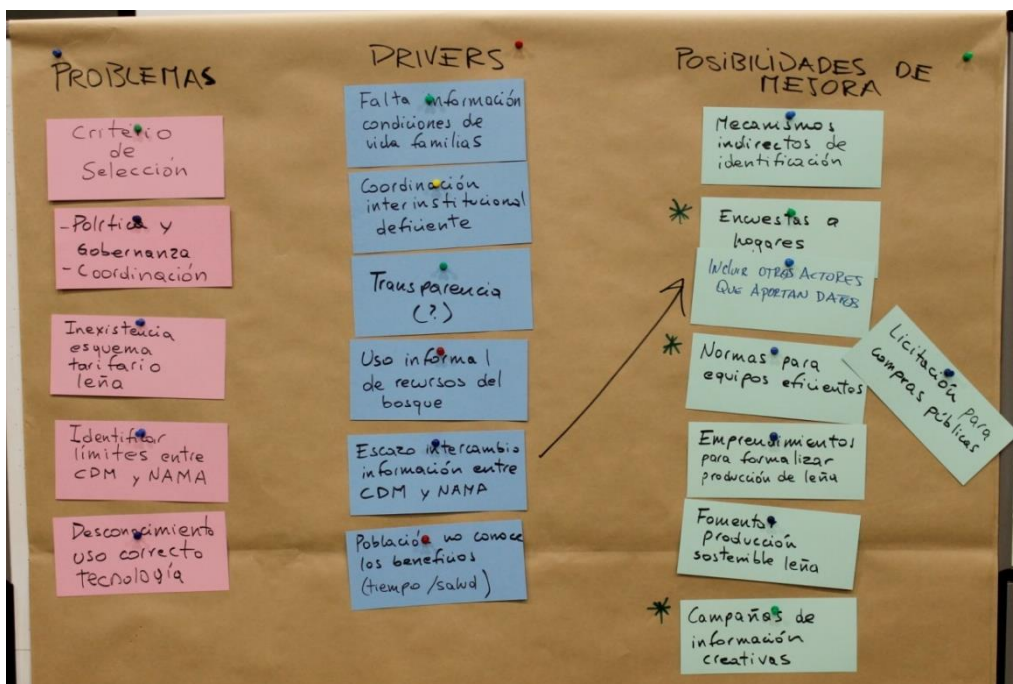 PROBLEMAS
Criterio
de
Selección
- Política y
Gobernanza
- Coordinación
Inexistencia
esquema
tarifario
leña
Identificar
límites entre
CDM y NAMA
Desconocimiento
uso correcto
tecnología
DRIVERS
Falta información
condiciones de
vida familias
Coordinación
interinstitucional
deficiente
Transparencia
(?)
Uso informal
de recursos del
bosque
Escazo intercambio
información entre
CDM y NAMA
Población no conoce
los beneficios
(tiempo/salud)
POSIBILIDADES DE
MEJORA
Mecanismos
indirectos de
identificación
* Encuestas a
hogares
INCLUIR OTROS ACTORES
QUE APORTAN DATOS
* Normas para
equipos eficientos
Licitación para
compras públicas
Emprendimientos
para formalizar
producción de leña
Fomento
producción
sostenible leña
* Campañas de
información
creativas